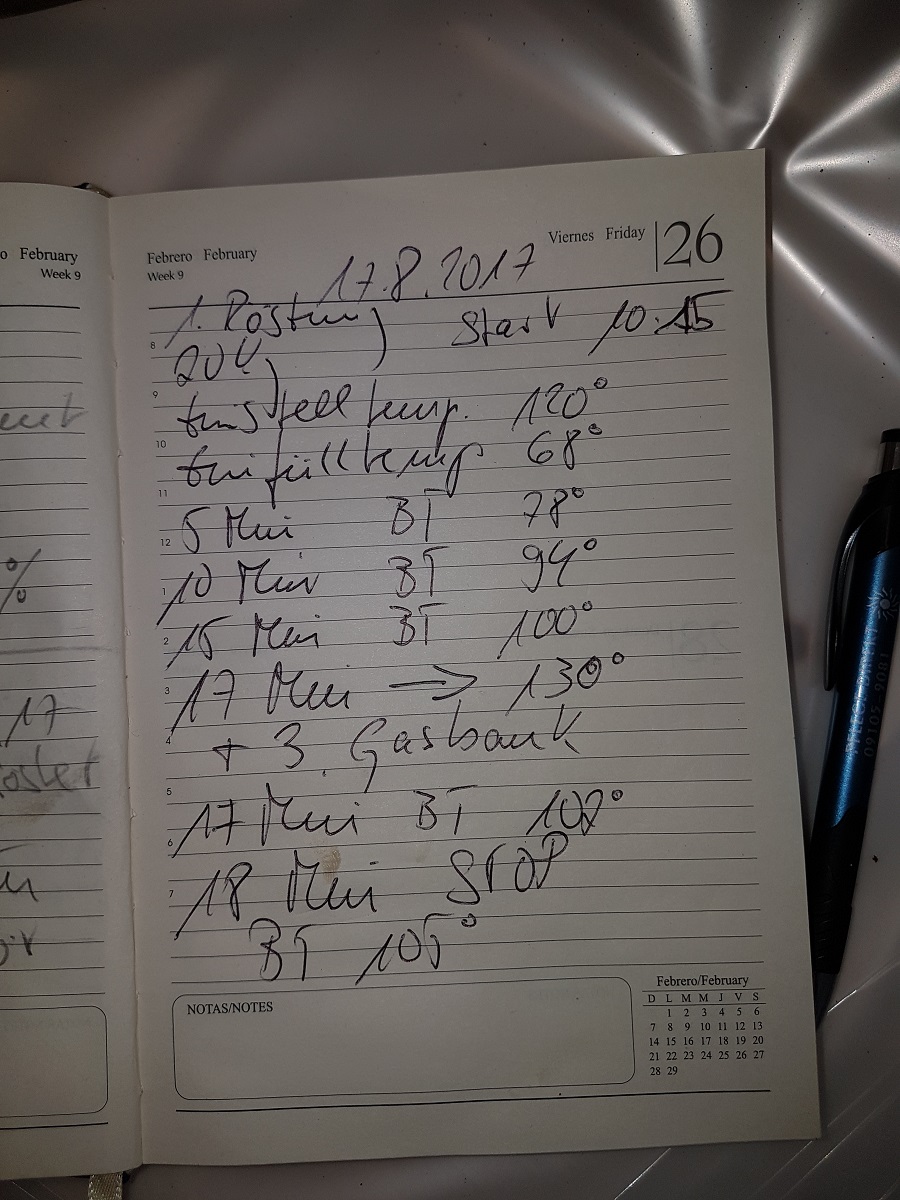 o February
Week 9
%
17
Febrero February
Week 9
Viernes Friday 26
17.8.2017
1. Röstung Start 10.15
8
9
Einstelltemp. 120°
10
Einfülltemp 68°
11
5 Min BT 78°
12
10 Min BT 94°
1
15 Min BT 100°
2
17 Min → 130°
3
+ 3. Gasbank
4
5
17 Min BT 102°
6
18 Min STOP
7
BT 105°
NOTAS/NOTES
Febrero/February
D L M M J V S
1 2 3 4 5 6
7 8 9 10 11 12 13
14 15 16 17 18 19 20
21 22 23 24 25 26 27
28 29
09105-9081